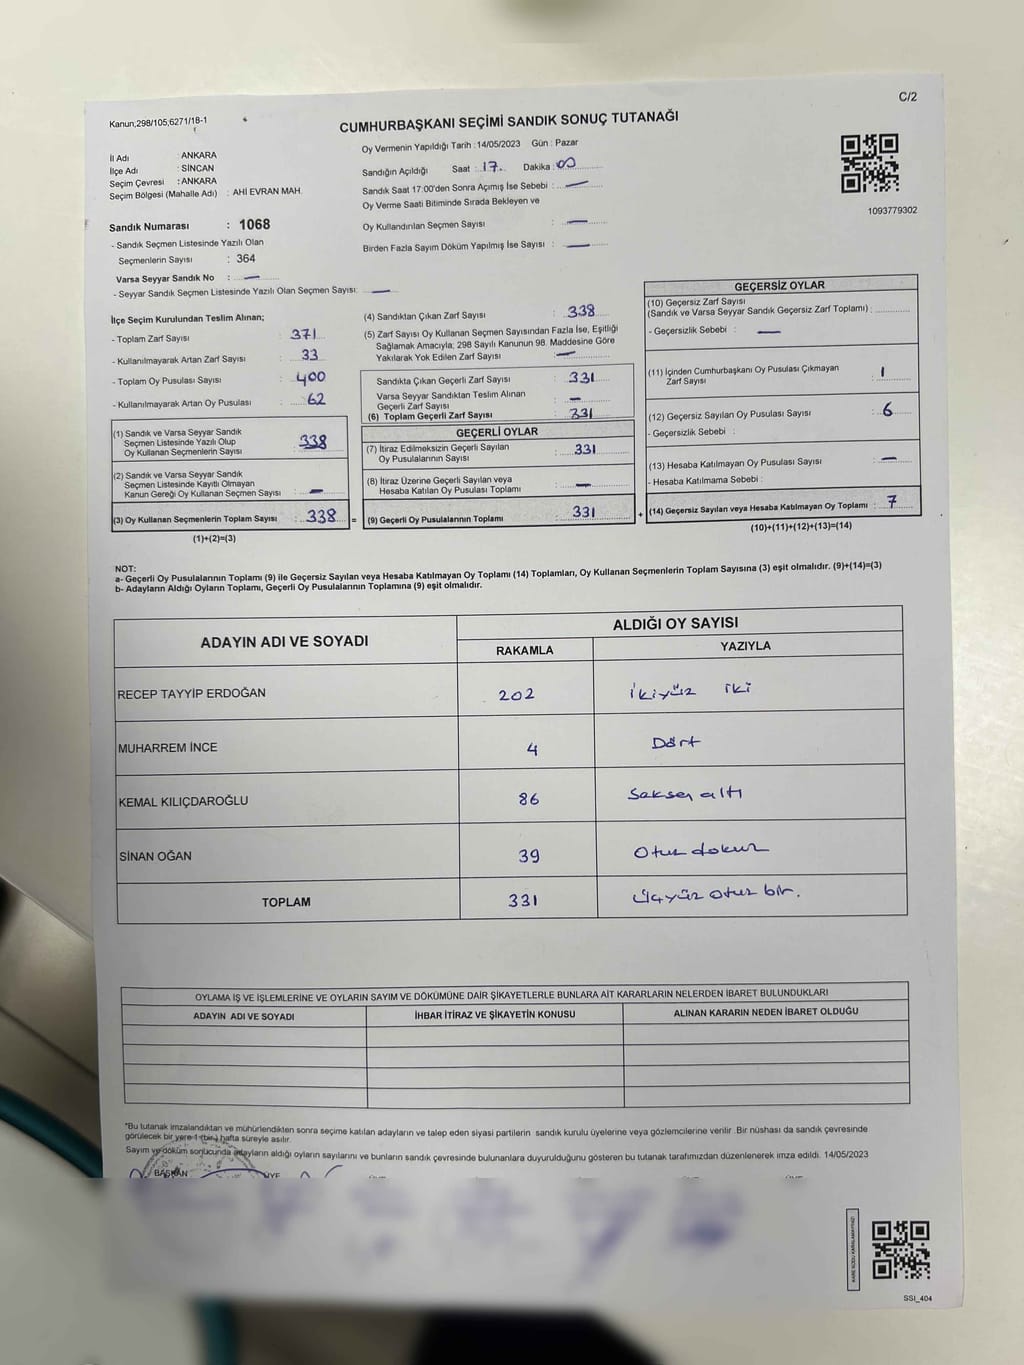 C/2
Kanun,298/105,6271/18-1
CUMHURBAŞKANI SEÇİMİ SANDIK SONUÇ TUTANAĞI
İl Adı : ANKARA
İlçe Adı : SİNCAN
Seçim Çevresi : ANKARA
Seçim Bölgesi (Mahalle Adı) : AHİ EVRAN MAH.
Sandık Numarası : 1068
- Sandık Seçmen Listesinde Yazılı Olan
Seçmenlerin Sayısı : 364
Varsa Seyyar Sandık No : —
- Seyyar Sandık Seçmen Listesinde Yazılı Olan Seçmen Sayısı: —
Oy Vermenin Yapıldığı Tarih :14/05/2023 Gün : Pazar
Sandığın Açıldığı Saat : 17 Dakika : 00
Sandık Saat 17:00'den Sonra Açımış İse Sebebi : —
Oy Verme Saati Bitiminde Sırada Bekleyen ve
Oy Kullandırılan Seçmen Sayısı : —
Birden Fazla Sayım Döküm Yapılmış İse Sayısı : —
1093779302
İlçe Seçim Kurulundan Teslim Alınan;
- Toplam Zarf Sayısı : 371
- Kullanılmayarak Artan Zarf Sayısı : 33
- Toplam Oy Pusulası Sayısı : 400
- Kullanılmayarak Artan Oy Pusulası : 62
(1) Sandık ve Varsa Seyyar Sandık
Seçmen Listesinde Yazılı Olup
Oy Kullanan Seçmenlerin Sayısı : 338
(2) Sandık ve Varsa Seyyar Sandık
Seçmen Listesinde Kayıtlı Olmayan
Kanun Gereği Oy Kullanan Seçmen Sayısı : —
(3) Oy Kullanan Seçmenlerin Toplam Sayısı : 338 =
(1)+(2)=(3)
(4) Sandıktan Çıkan Zarf Sayısı : 338
(5) Zarf Sayısı Oy Kullanan Seçmen Sayısından Fazla İse, Eşitliği
Sağlamak Amacıyla; 298 Sayılı Kanunun 98. Maddesine Göre
Yakılarak Yok Edilen Zarf Sayısı : —
Sandıkta Çıkan Geçerli Zarf Sayısı : 331
Varsa Seyyar Sandıktan Teslim Alınan
Geçerli Zarf Sayısı : —
(6) Toplam Geçerli Zarf Sayısı : 331
GEÇERLİ OYLAR
(7) İtiraz Edilmeksizin Geçerli Sayılan
Oy Pusulalarının Sayısı : 331
(8) İtiraz Üzerine Geçerli Sayılan veya
Hesaba Katılan Oy Pusulası Toplamı : —
(9) Geçerli Oy Pusulalarının Toplamı : 331 +
GEÇERSİZ OYLAR
(10) Geçersiz Zarf Sayısı
(Sandık ve Varsa Seyyar Sandık Geçersiz Zarf Toplamı) :
- Geçersizlik Sebebi : —
(11) İçinden Cumhurbaşkanı Oy Pusulası Çıkmayan
Zarf Sayısı : 1
(12) Geçersiz Sayılan Oy Pusulası Sayısı : 6
- Geçersizlik Sebebi :
(13) Hesaba Katılmayan Oy Pusulası Sayısı : —
- Hesaba Katılmama Sebebi :
(14) Geçersiz Sayılan veya Hesaba Katılmayan Oy Toplamı : 7
(10)+(11)+(12)+(13)=(14)
NOT:
a- Geçerli Oy Pusulalarının Toplamı (9) ile Geçersiz Sayılan veya Hesaba Katılmayan Oy Toplamı (14) Toplamları, Oy Kullanan Seçmenlerin Toplam Sayısına (3) eşit olmalıdır. (9)+(14)=(3)
b- Adayların Aldığı Oyların Toplamı, Geçerli Oy Pusulalarının Toplamına (9) eşit olmalıdır.
ADAYIN ADI VE SOYADI ALDIĞI OY SAYISI
RAKAMLA YAZIYLA
RECEP TAYYİP ERDOĞAN 202 İkiyüz iki
MUHARREM İNCE 4 Dört
KEMAL KILIÇDAROĞLU 86 Seksen altı
SİNAN OĞAN 39 Otuz dokuz
TOPLAM 331 Üçyüz otuz bir.
OYLAMA İŞ VE İŞLEMLERİNE VE OYLARIN SAYIM VE DÖKÜMÜNE DAİR ŞİKAYETLERLE BUNLARA AİT KARARLARIN NELERDEN İBARET BULUNDUKLARI
ADAYIN ADI VE SOYADI İHBAR İTİRAZ VE ŞİKAYETİN KONUSU ALINAN KARARIN NEDEN İBARET OLDUĞU
*Bu tutanak imzalandıktan ve mühürlendikten sonra seçime katılan adayların ve talep eden siyasi partilerin sandık kurulu üyelerine veya gözlemcilerine verilir .Bir nüshası da sandık çevresinde
görülecek bir yere 1 (bir) hafta süreyle asılır.
Sayım ve döküm sonucunda adayların aldığı oyların sayılarını ve bunların sandık çevresinde bulunanlara duyurulduğunu gösteren bu tutanak tarafımızdan düzenlenerek imza edildi. 14/05/2023
BAŞKAN ÜYE
KARE KODU KARALAMAYINIZ!
SSI_404